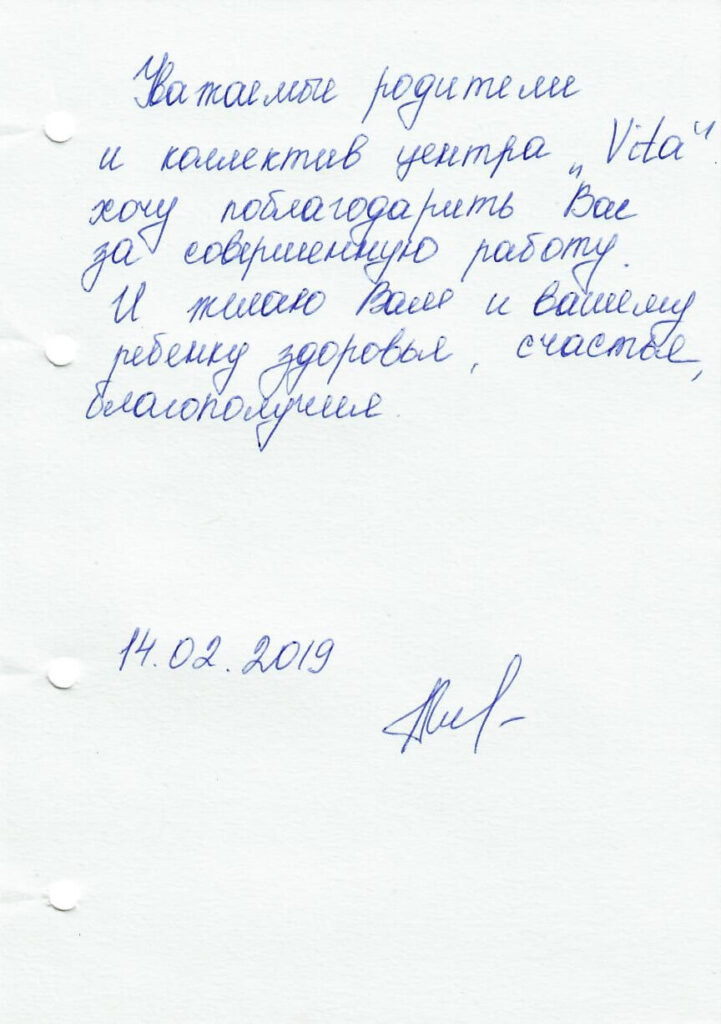 Уважаемые родители
и коллектив центра „Vita"
хочу поблагодарить Вас
за совершенную работу.
И желаю Вам и вашему
ребенку здоровья, счастья,
благополучия.
14.02.2019